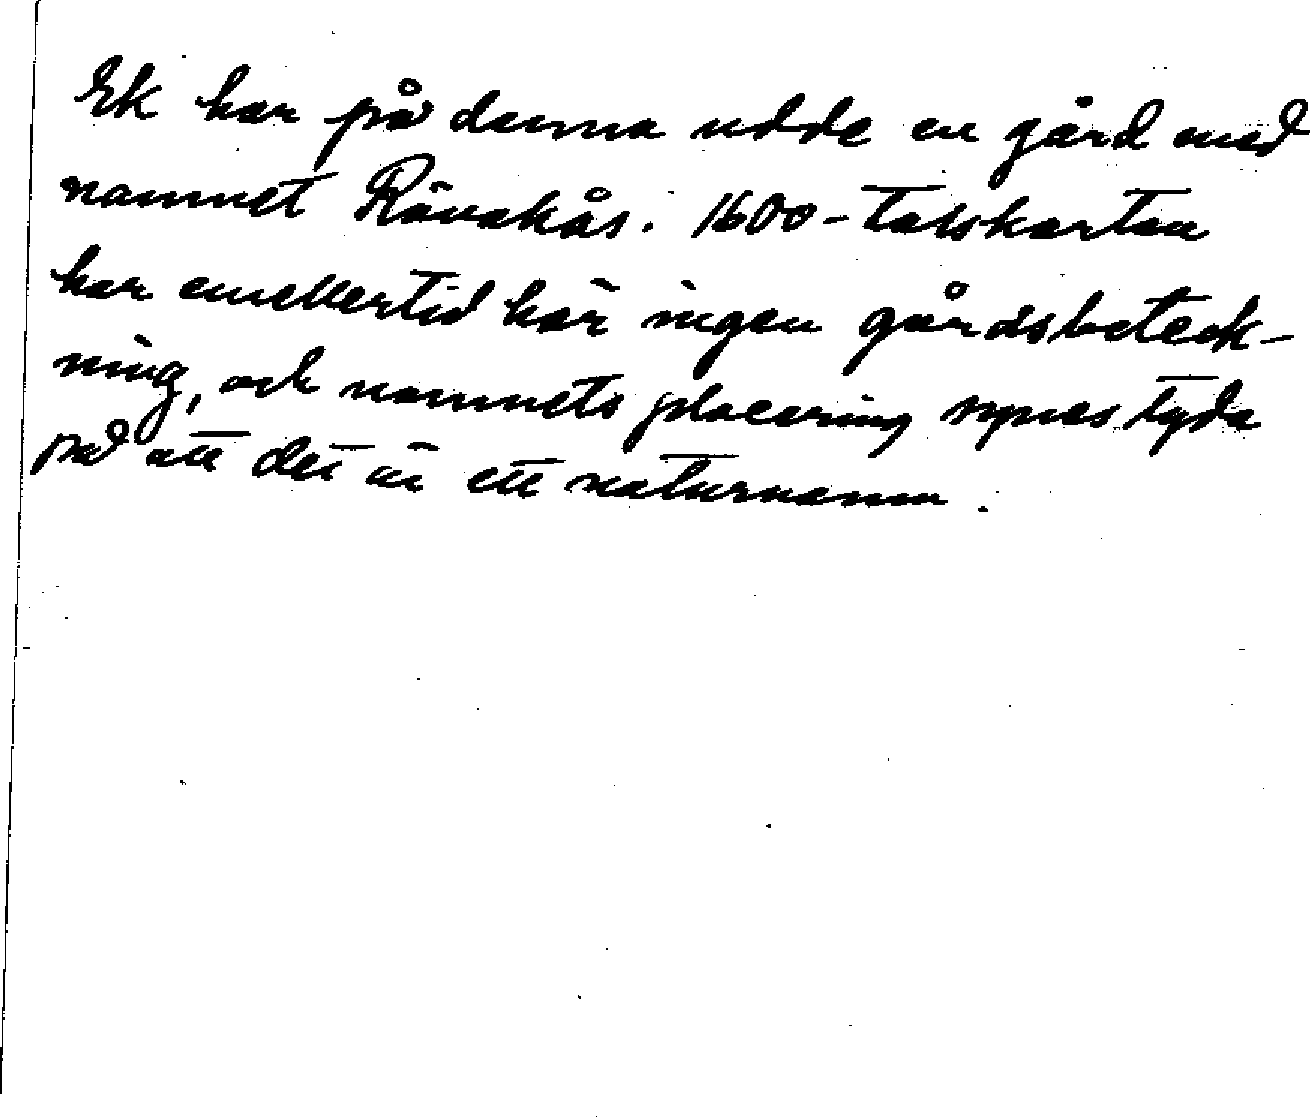 Ek har på denna udde en gård med
namnet Rävakås. 1600-talskartan
har emellertid här ingen gårdsbeteck-
ning, och namnets placering synes tyda
på att det är ett naturnamn.